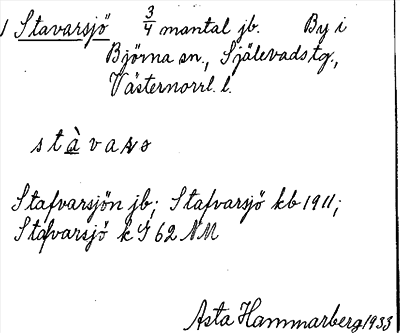 1 Stavarsjö 3/4 mantal jb. By i
Björna sn., Själevads tg.,
Västernorrl. l.
Stafvarsjön jb; Stafvarsjö kb 1911;
Stafvarsjö k 62 NM
Asta Hammarberg 1933